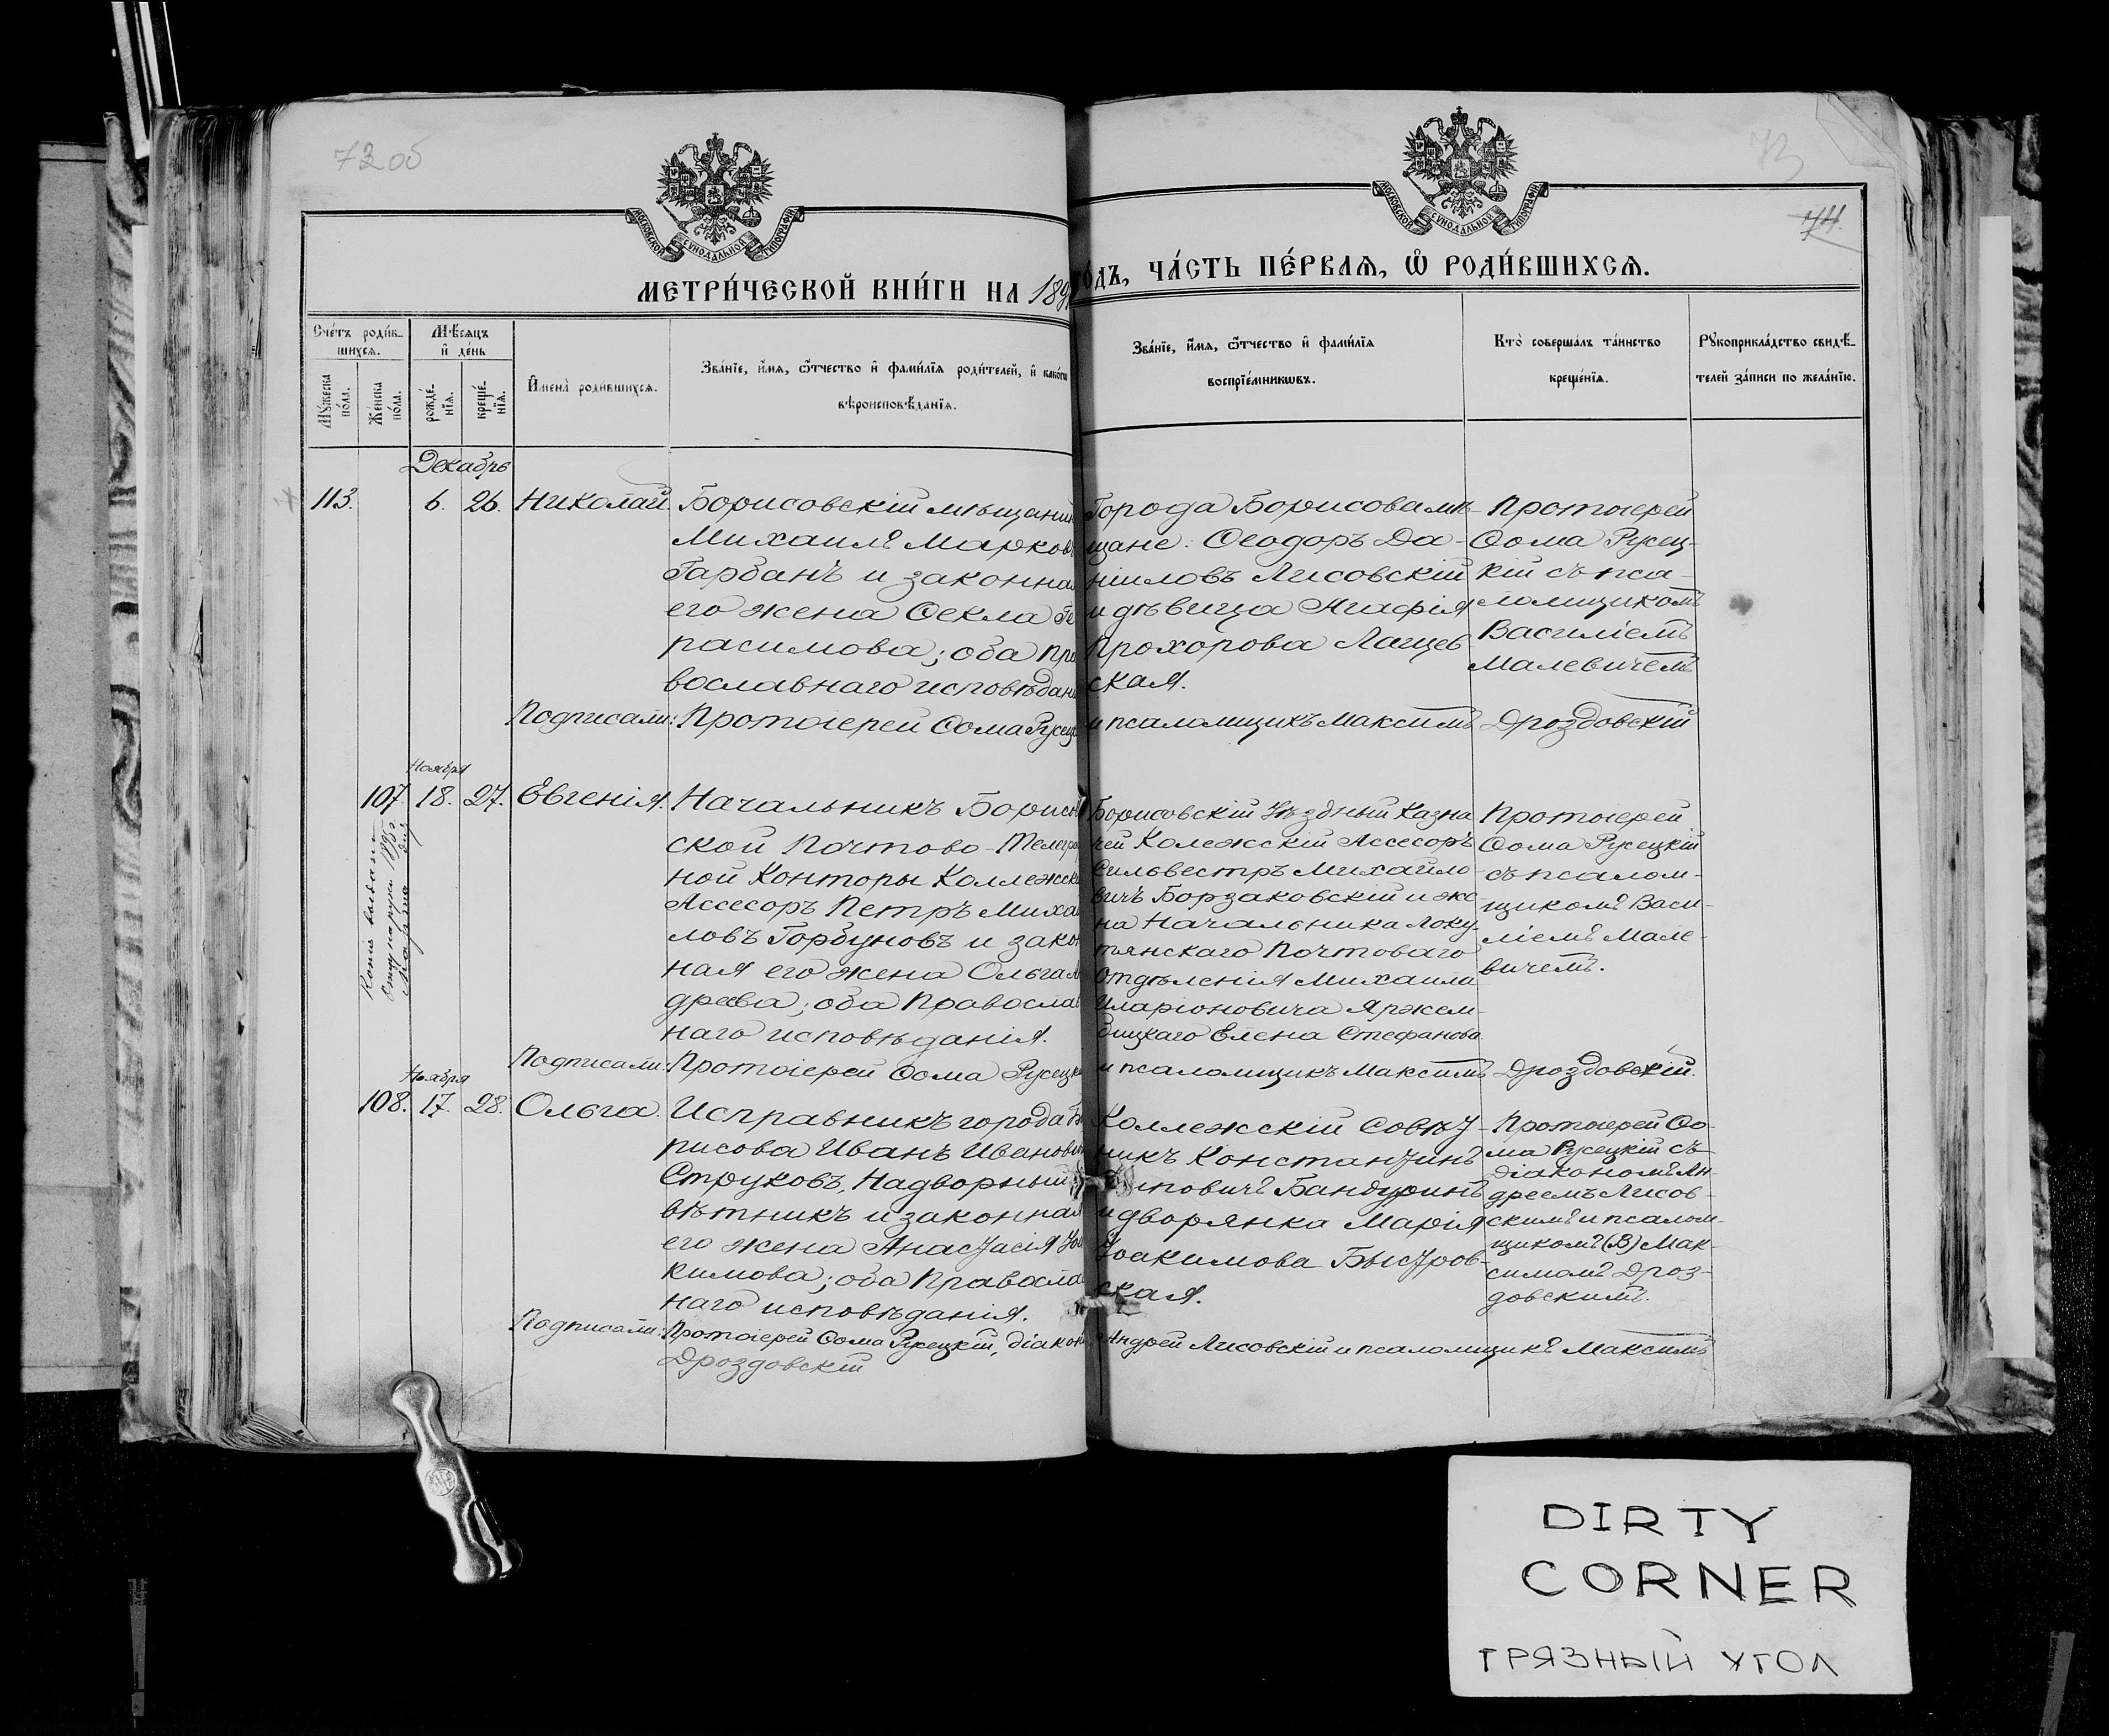 72 об
73
74.
МОСКОВСКОЙ СѴНОДАЛЬНОЙ ТИПОГРАФІИ
МОСКОВСКОЙ СѴНОДАЛЬНОЙ ТИПОГРАФІИ
МЕТРИ́ЧЕСКОЙ КНИ́ГИ НА 189
ГО́ДЪ, ЧА́СТЬ ПЕ́РВАЯ, Ѽ РОДИ́ВШИХСЯ.
Сче́тъ роди́в-
шихся.
Мѣ́сяцъ
и҆ де́нь
Мꙋ́жеска
по́ла.
Же́нска
по́ла.
рожде́-
нїя.
креще́-
нїя.
И҆мена̀ роди́вшихся.
Зва́нїе, и҆́мя, ѻ҆́тчество и҆ фами́лїя роди́телей, и҆ како́гѡ
вѣроисповѣ́данїя.
Зва́нїе, и҆́мя, ѻ҆́тчество и҆ фами́лїя
воспрїе́мникѡвъ.
Кто̀ соверша́лъ та́инство
креще́нїя.
Рꙋкоприкла́дство свидѣ́-
телей за́писи по жела́нїю.
Декабрь
113. 6. 26. Николай.
Борисовскій мѣщанин
Михаилъ Марков
Гарбанъ и законная
его жена Ѳекла Ге
расимова; оба пра
вославнаго исповѣдані
Города Борисова мѣ-
щане: Ѳеодоръ Да-
ніиловъ Лисовскій
и дѣвица Агафія
Прохорова Лащев
ская.
Протоіерей
Ѳома Русец-
кій съ пса-
ломщикомъ
Василіемъ
Малевичемъ
Подписали: Протоіерей Ѳома Русецк и псаломщикъ Максимъ Дроздовскій
Ноября
107. 18. 27. Евгенія.
Копія выдана
отцу на руки 1895 г.
Марта дня
Начальникъ Борисов
ской Почтово-Телегра
ной Конторы Коллежскі
Ассесоръ Петръ Михаи
ловъ Горбуновъ и закон
ная его жена Ольга Ан
дреева; оба Православ
наго исповѣданія.
Борисовскій Уѣздный Казна
чей Колежскій Ассесоръ
Сильвестръ Михайло-
вичъ Борзаковскій и же
на Начальника Локу-
тянскаго Почтоваго
Отдѣленія Михаила
Иларіоновича Яржем-
бицкаго Елена Стефанова.
Протоіерей
Ѳома Русецкій
съ псалом-
щикомъ Васи-
ліемъ Мале-
вичемъ.
Подписали: Протоіерей Ѳома Русецкі и псаломщикъ Максимъ Дроздовскій.
Ноября
108. 17. 28. Ольга.
Исправникъ города Бо
рисова Иванъ Иванович
Струковъ, Надворный
вѣтникъ и законная
его жена Анастасія Іоа
кимова; оба Православ
наго исповѣданія.
Коллежскій Совѣт-
никъ Константинъ
повичъ Бандуринъ
и дворянка Марія
Іоакимова Быстров-
ская.
Протоіерей Ѳо-
ма Русецкій съ
діакономъ Ан-
дреемъ Лисов-
скимъ и псалом-
щикомъ (В) Мак-
симомъ Дроз-
довскимъ.
Подписали: Протоіерей Ѳома Русецкій, діакон Андрей Лисовскій и псаломщикъ Максимъ
Дроздовскій
DIRTY
CORNER
ГРЯЗНЫЙ УГОЛ